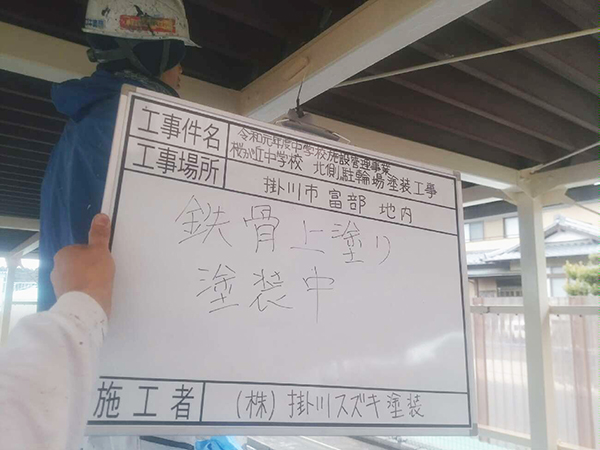 工事件名
令和元年度中学校施設管理事業
桜が丘中学校 北側駐輪場塗装工事
工事場所
掛川市 富部 地内
鉄骨上塗り
塗装中
施工者
(株)掛川スズキ塗装